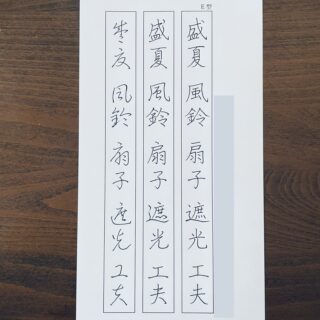 E型
盛夏 風鈴 扇子 遮光 工夫
盛夏 風鈴 扇子 遮光 工夫
盛夏 風鈴 扇子 遮光 工夫